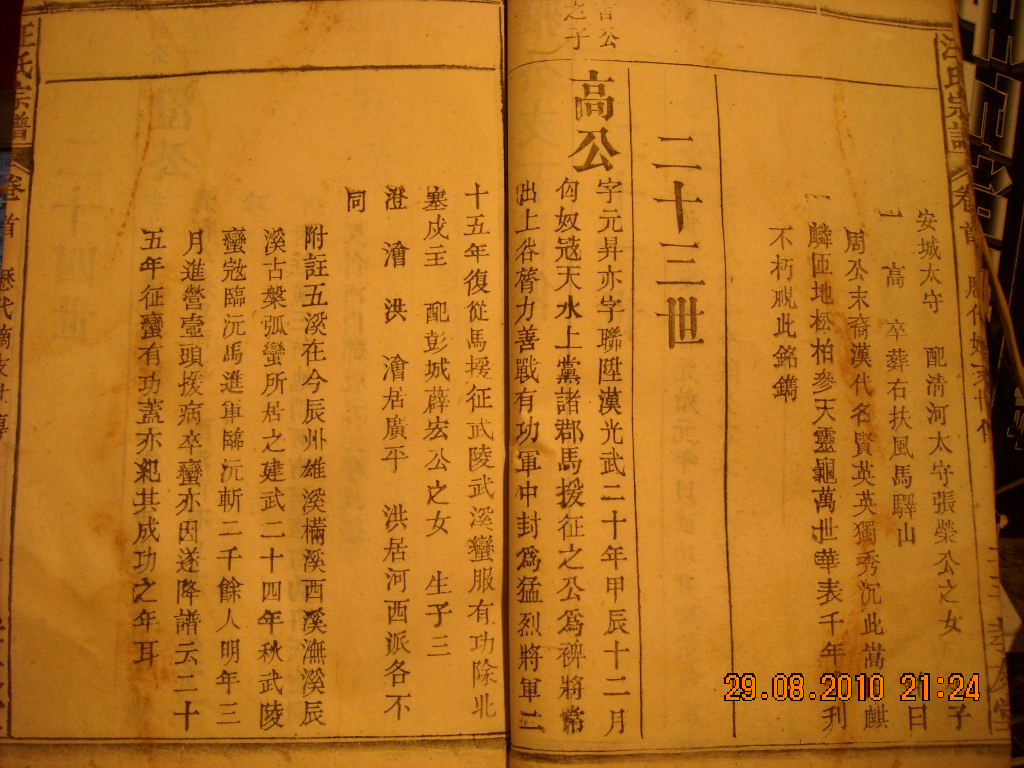 汪氏宗譜 卷首 歷代
安城太守 配清河太守張榮公之女 子
一 高 卒葬右扶風馬驛山 曰
周公末裔漢代名賢英英獨秀沉此蒿麒
麟匝地松柏參天靈龜萬世華表千年刋
不朽視此銘鐫
二十三世
耆公
之子
高公
字元昇亦字聯陞漢光武二十年甲辰十二月
匈奴冦天水上黨諸郡馬援征之公爲裨將常
出上谷膂力善戰有功軍中封爲猛烈將軍二
十五年復從馬援征武陵武溪蠻服有功除北
塞戍主 配彭城薛宏公之女 生子三
澄 澮 洪 澮居廣平 洪居河西派各不
同
附註五溪在今辰州雄溪樠溪西溪潕溪辰
溪古槃弧蠻所居之建武二十四年秋武陵
蠻冦臨沅馬進軍臨沅斬二千餘人明年三
月進營壺頭援病卒蠻亦因遂降譜云二十
五年征蠻有功蓋亦紀其成功之年耳
汪氏宗譜 卷首 歷代嫡支世傳
29.08.2010 21:24